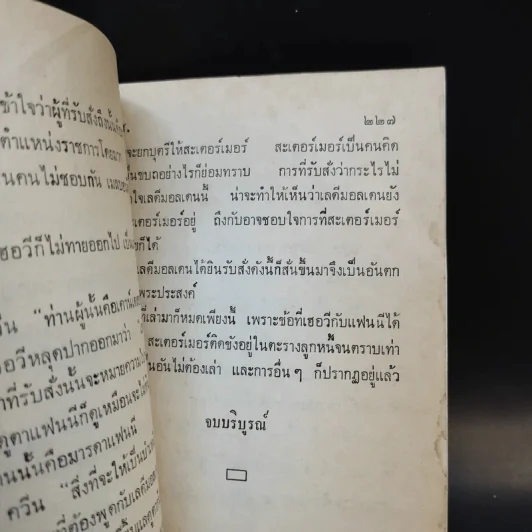 ข้าใจว่าผู้ที่รับสั่งถึงนั้น
ตำแหน่งราชการโดย
นคนไม่ชอบกัน
เฮอวีก็ไม่ทายออกไป
วีน "ท่านผู้นั้นคือเคาน์
อวีหลุดปากออกมาว่า
าที่รับสั่งนั้นจะหมายความ
ดูตาแฟนนีก็ดูเหมือนจะ
านนั้นคือมารดาแฟนนี
ควีน "สิ่งที่จะให้เป็น
ที่ต้องพูดกับเลดีมอล
๒๒๗
จะยกบุตรีให้สะเตอร์เมอร์ สะเตอร์เมอร์เป็นคนคิด
ขบถอย่างไรก็ย่อมทราบ การที่รับสั่งว่ากระไรไม่
ใจเลดีมอลเดนนี้ น่าจะทำให้เห็นว่าเลดีมอลเดนยัง
เตอร์เมอร์อยู่ ถึงกับอาจชอบใจการที่สะเตอร์เมอร์
ก็ได้
เลดีมอลเดนได้ยินรับสั่งดังนี้ก็สั่นขึ้นมาจึงเป็นอันตก
พระประสงค์
ที่เล่ามาก็หมดเพียงนี้ เพราะข้อที่เฮอวีกับแฟนนีได้
สะเตอร์เมอร์ติดขังอยู่ในตะรางลูกหนี้จนตราบเท่า
นอันไม่ต้องเล่า และการอื่นๆ ก็ปรากฏอยู่แล้ว
จบบริบูรณ์